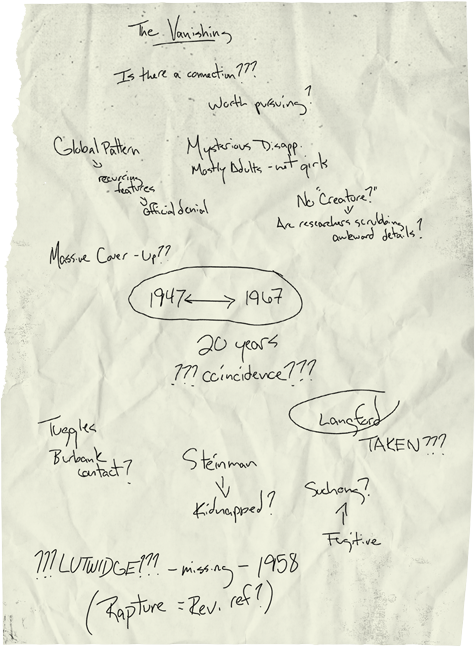 The Vanishing
Is there a connection???
Worth pursuing?
Global Pattern
recurring features
official denial
Mysterious Disapp.
Mostly Adults - not girls
No "Creature?"
Are researchers scrubbing
awkward details?
Massive Cover-Up??
1947 ↔ 1967
20 years
??? coincidence???
Langford
TAKEN???
Tueggles
Burbank
contact?
Steinman
Kidnapped?
Suchong?
Fugitive
???LUTWIDGE??? - missing - 1958
(Rapture = Rev. ref?)